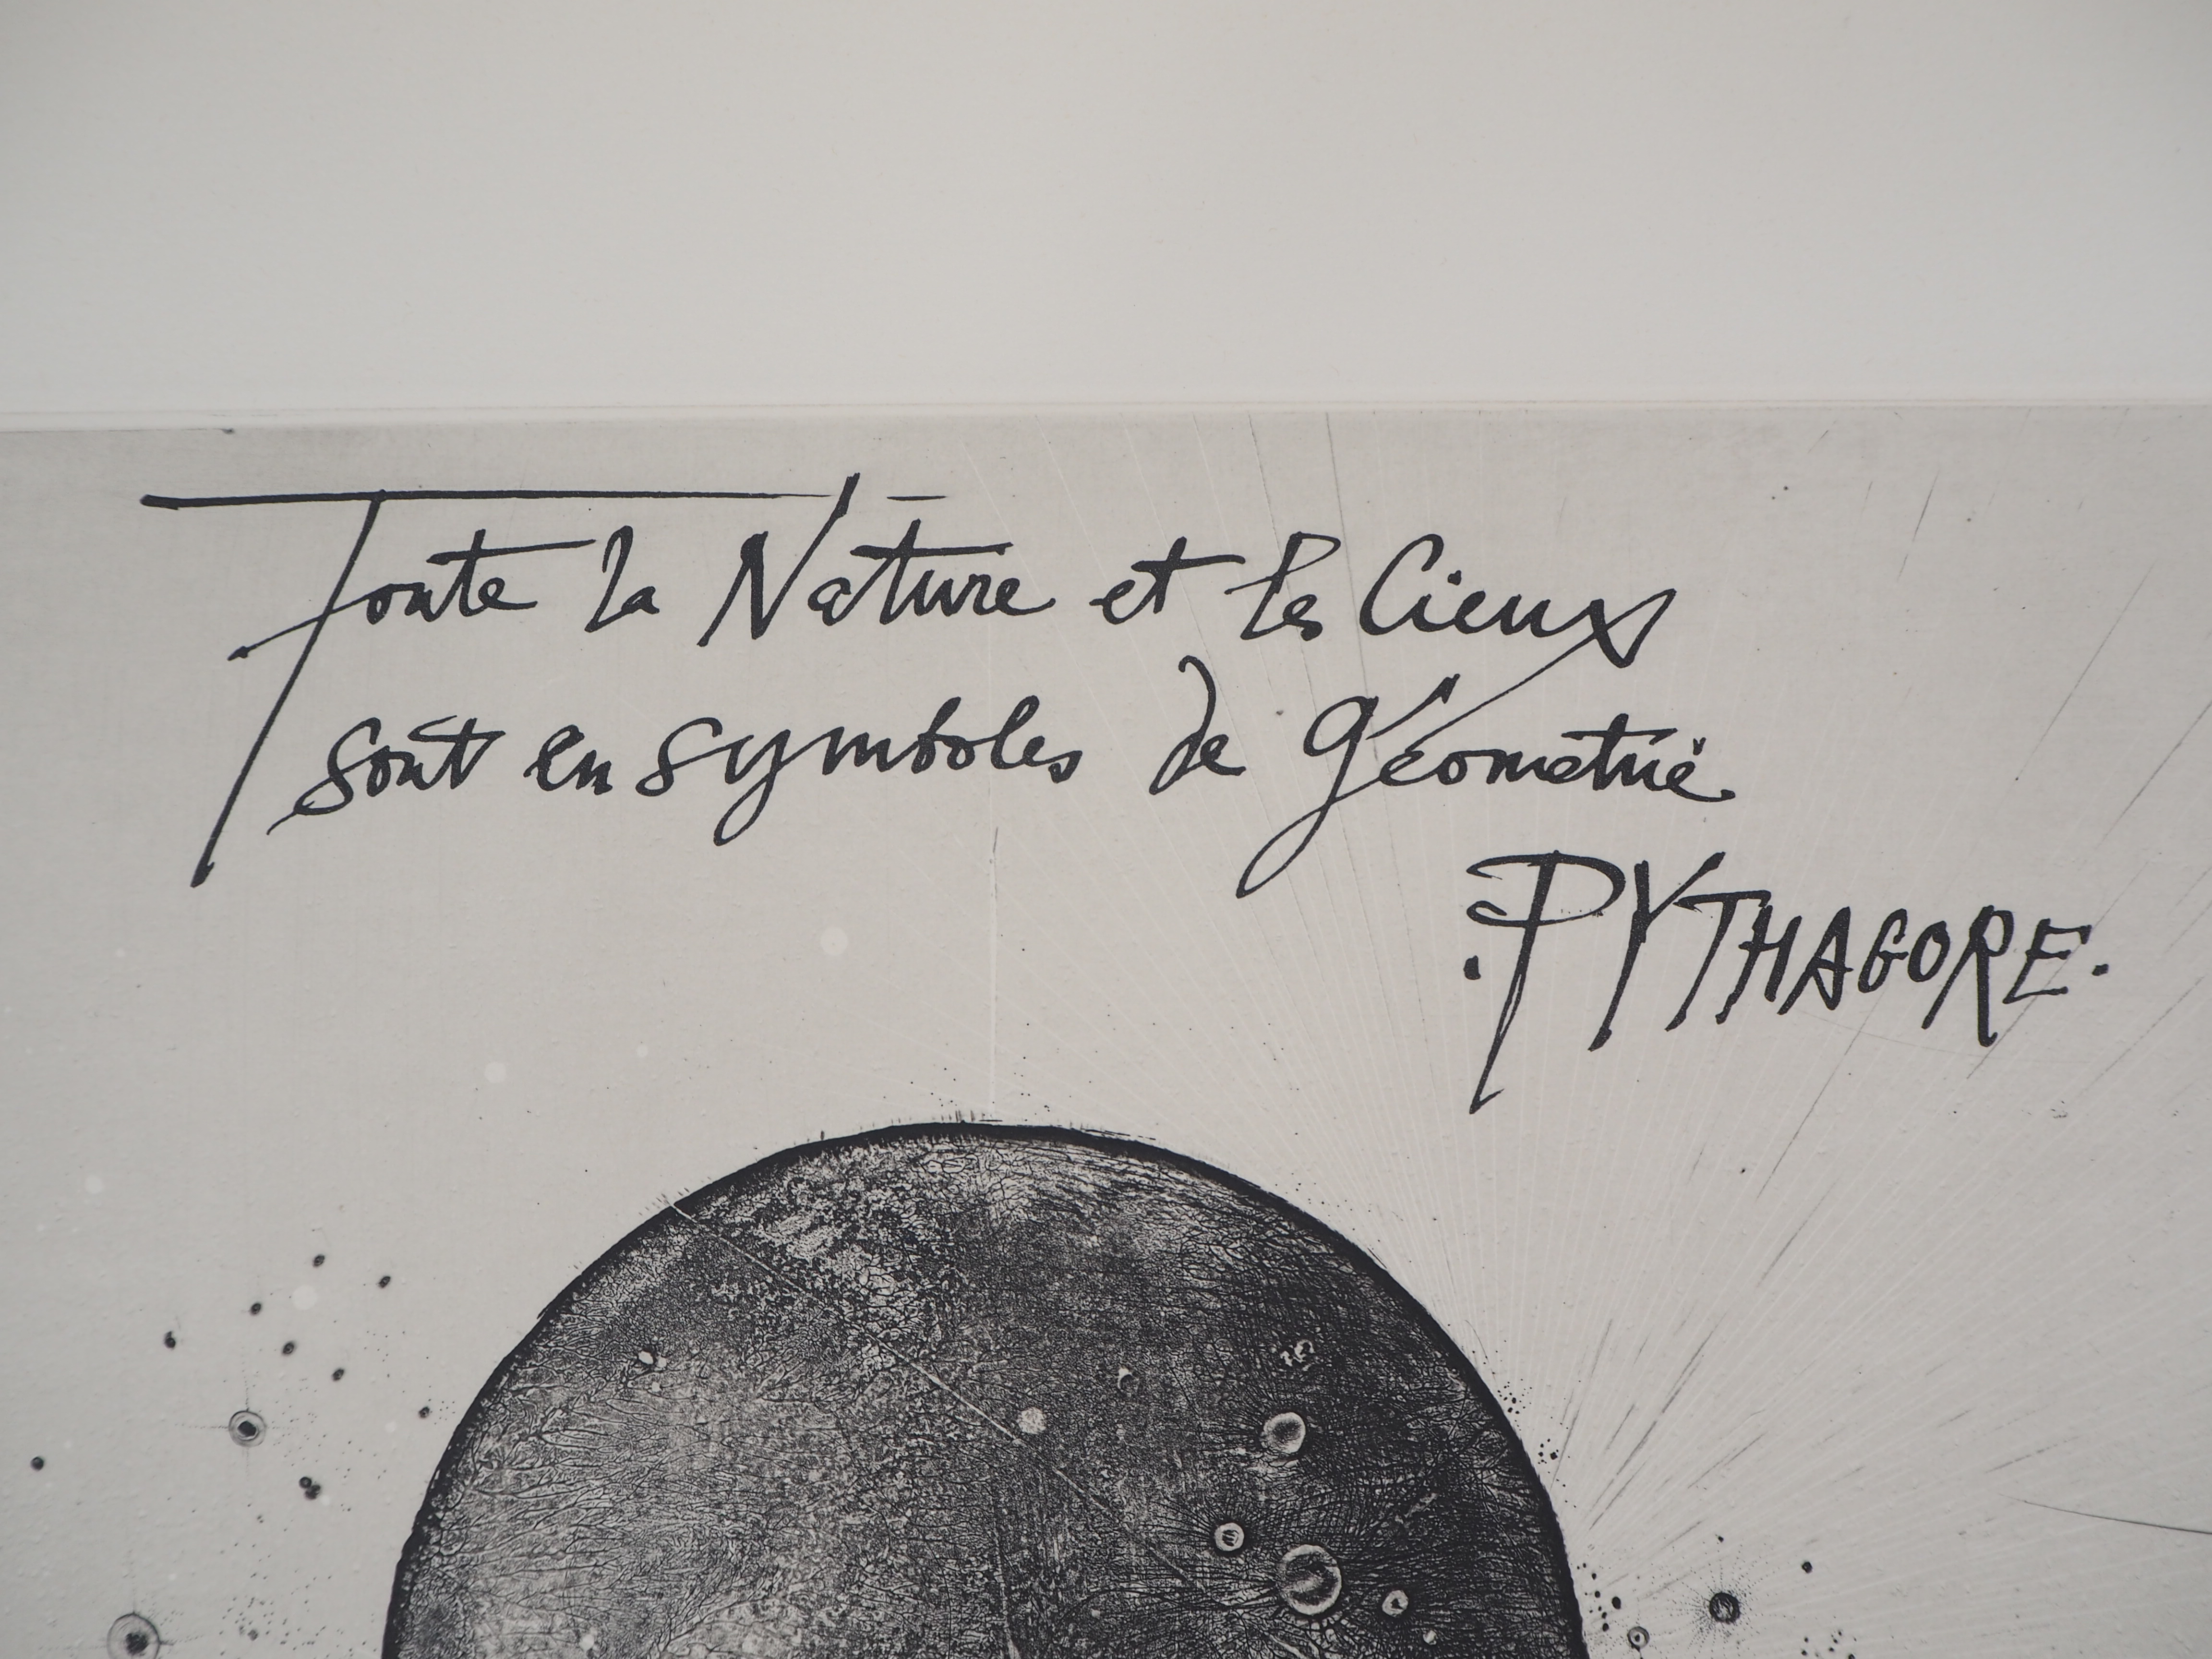 Toute la Nature et les Cieux
sont en symboles de Géométrie
.PYTHAGORE.